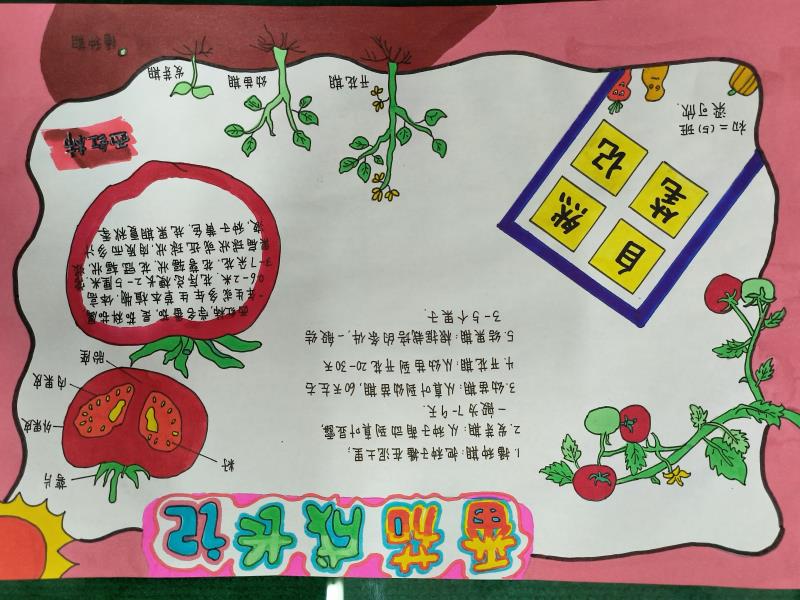 番茄成长记
萼片
外果皮
内果皮
胎座
籽
1.播种期:把种子播在泥土里;
2.发芽期:从种子萌动到真叶显露,
一般为7-9天.
3.幼苗期:从真叶到幼苗期,60天左右
4.开花期:从幼苗到开花20-30天
5.结果期:根据栽培的条件,一般结
3-5个果子.
西红柿,学名番茄,是茄科茄属
一年生或多年生草本植物.体高
0.6-2米.花序总梗长2-5厘米,常
3-7朵花.花萼辐状.花冠辐状
果扁球状或近球状.肉质而多汁
液,种子黄色.花果期夏秋季
自然笔记
西红柿
播种期
发芽期
幼苗期
开花期
初二(5)班
梁可欣.